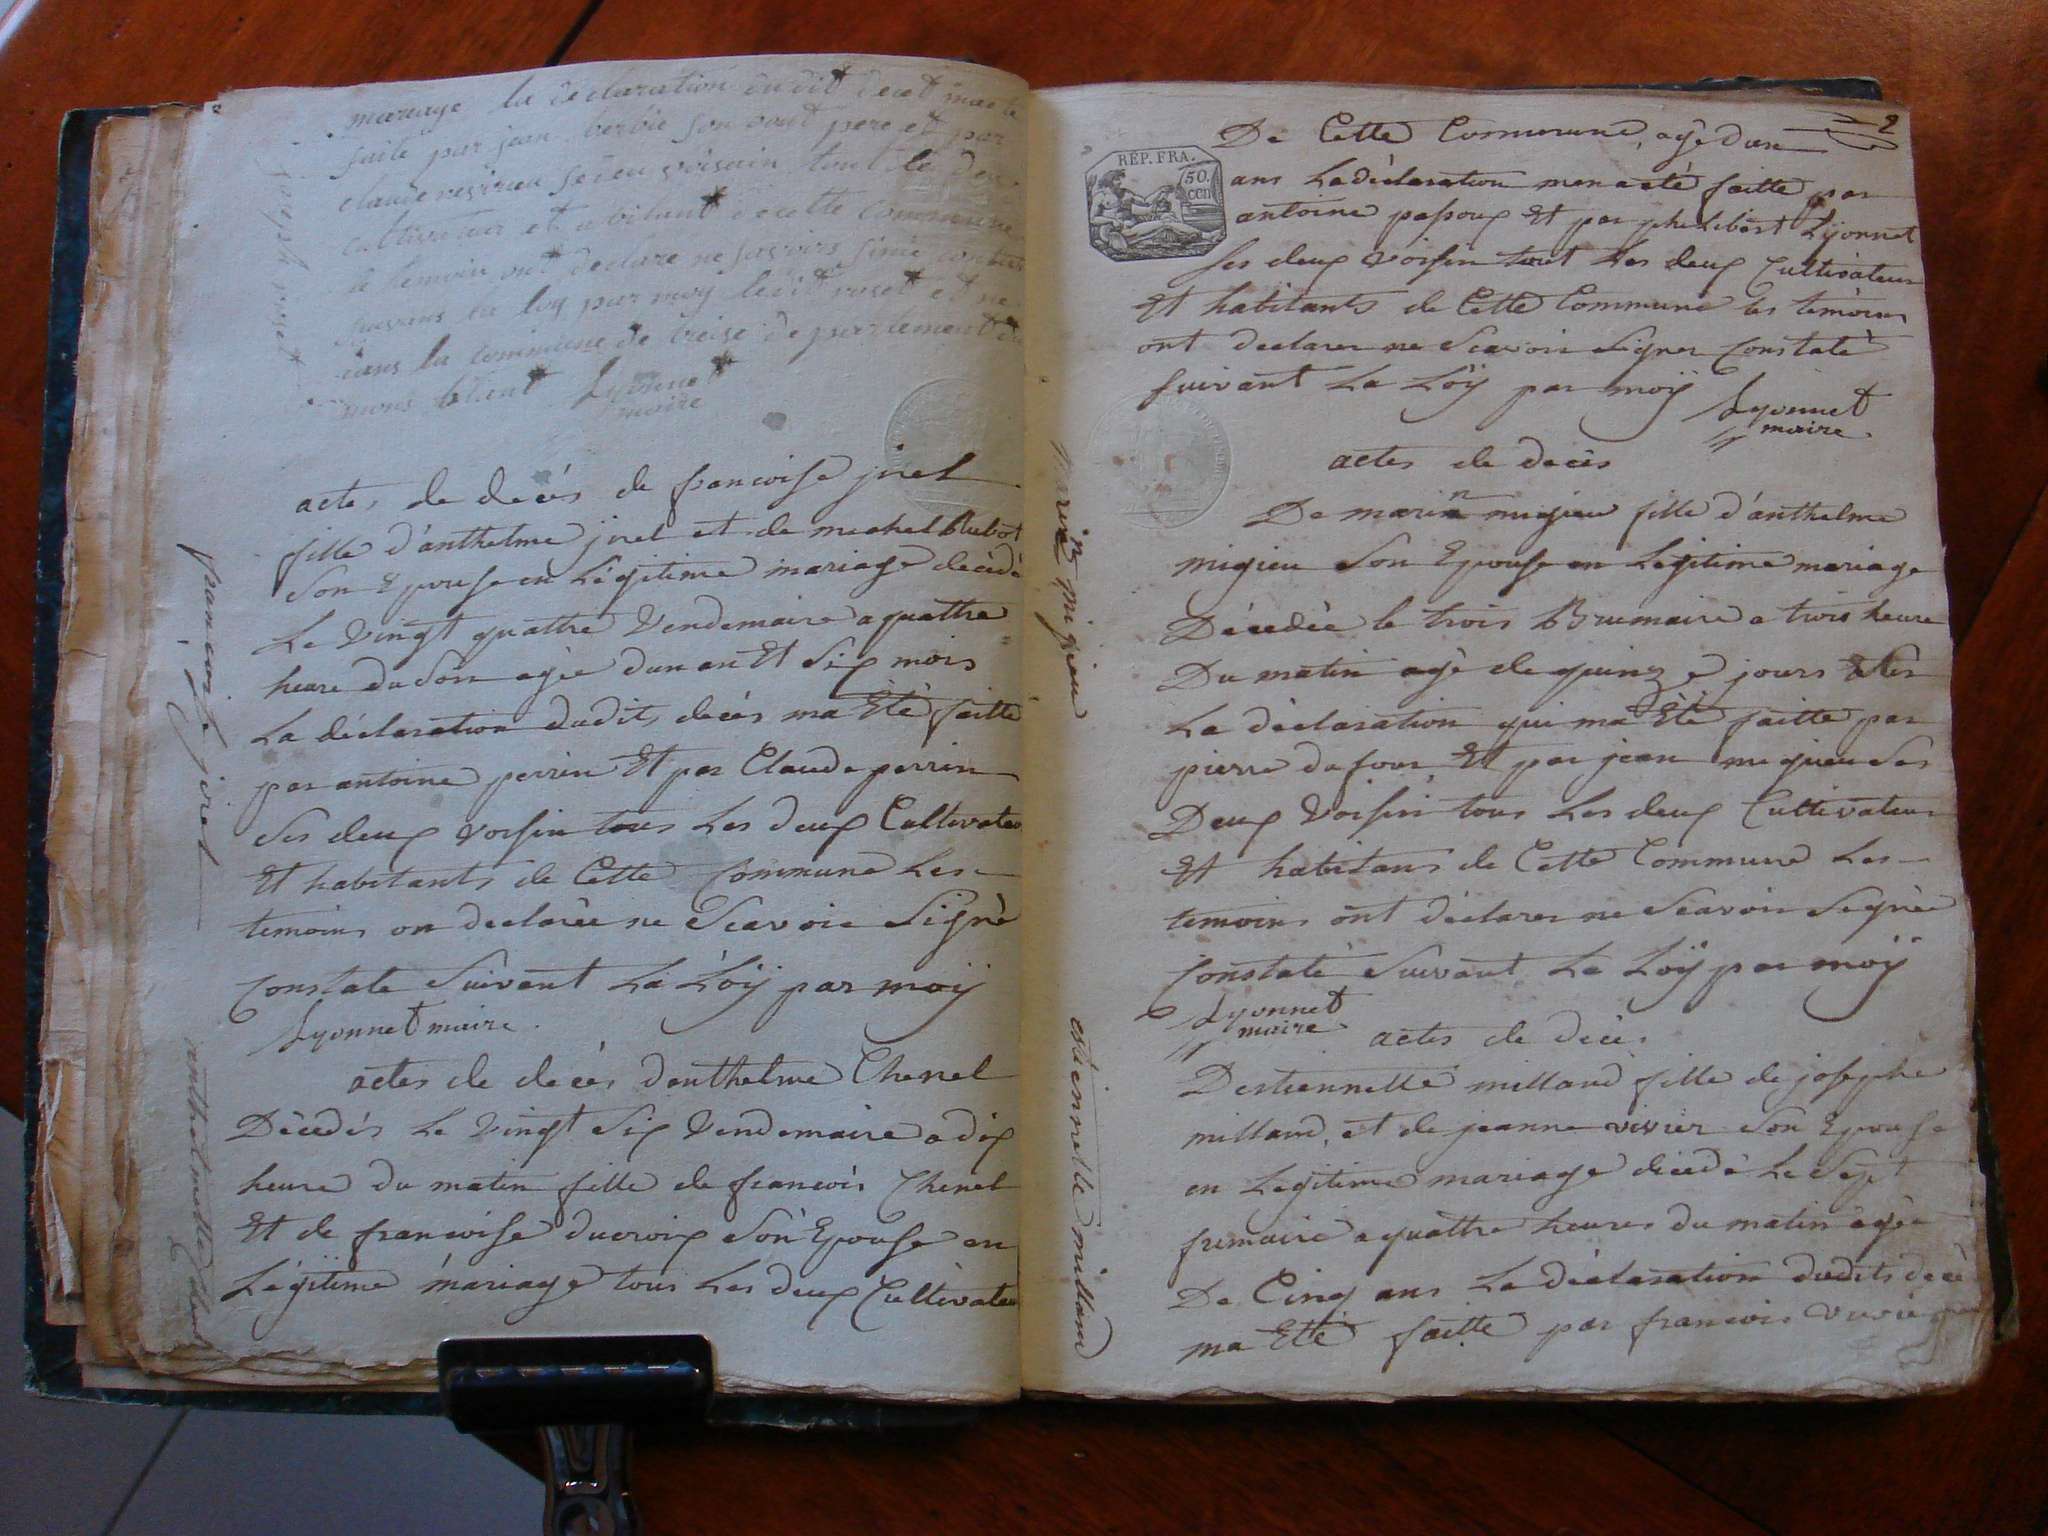 mariage la declaration dudit decet mae te
faite par jean bervié son vout pere et par
claude vesirieu seieu voisain tout le deu
cultivateur et abitant de cette commune
le temoin ont declare ne savoirs sinié contate
suivans la loy par moy ledit roset et ne
dans la commune de treise departement du
mons blient Lyonnet
maire
joseph roset
actes de decés de francoise jirel
fille d'anthelme jirel et de michel Blubot
Son Epouse en Légitime mariage décédé
Le Vingt quattre Vendemaire a quattre
heure du Soir agée dun an Et Six mois
La déclaration dudits decés ma Eté faitte
par antoine perrin Et par Claude perrin
Ses deux voisin tous Les deux Cultivateu
Et habitants de Cette Commune Les
temoins on declarée ne Scavoir Signé
Constate Suivant La Löy par moy
Lyonnet maire
francoise jirel
actes de decés danthelme Chenel
Décedés Le Vingt Six Vendemaire a dix
heure du matin fille de francois Chenel
Et de francoise ducroix Son Epouse en
Légitime mariage tous Les deux Cultivateu
anthelmette Chenel
2
De Cette Commune, agé dun
RÉP. FRA.
50. cen
ans La déclaration men a eté faitte par
antoine passoux Et par philibert Lyonnet
Ses deux Voisin tout Les deux Cultivateur
Et habitants de Cette Commune les temoins
ont declarer ne Scavoir Signer Constaté
Suivant La Löy par moÿ
Lyonnet
maire
actes de decés
De marin migieu fille d'anthelme
migieu Son Epouse en Legitime mariage
Décedée le trois Brumaire a trois heure
Du matin agé de quinze jours
La déclaration qui ma Eté faitte par
pierre dufour Et par jean migieu Ses
Deux Voisin tous Les deux Cultivateur
Et habitans de Cette Commune Les
temoins ont déclarer ne Scavoir Segnée
Constaté Suivant La Löÿ par moÿ
Lyonnet
maire
migieu
actes de décés
Destiennette milland fille de josephe
milland, et de jeanne vivier Son Epouse
en Legitime mariage décédé Le Sept
frimaire a quattre heures du matin agée
De Cinq ans La déclaration dudits decé
ma Eté faitte par francois vivié
estiennette milland